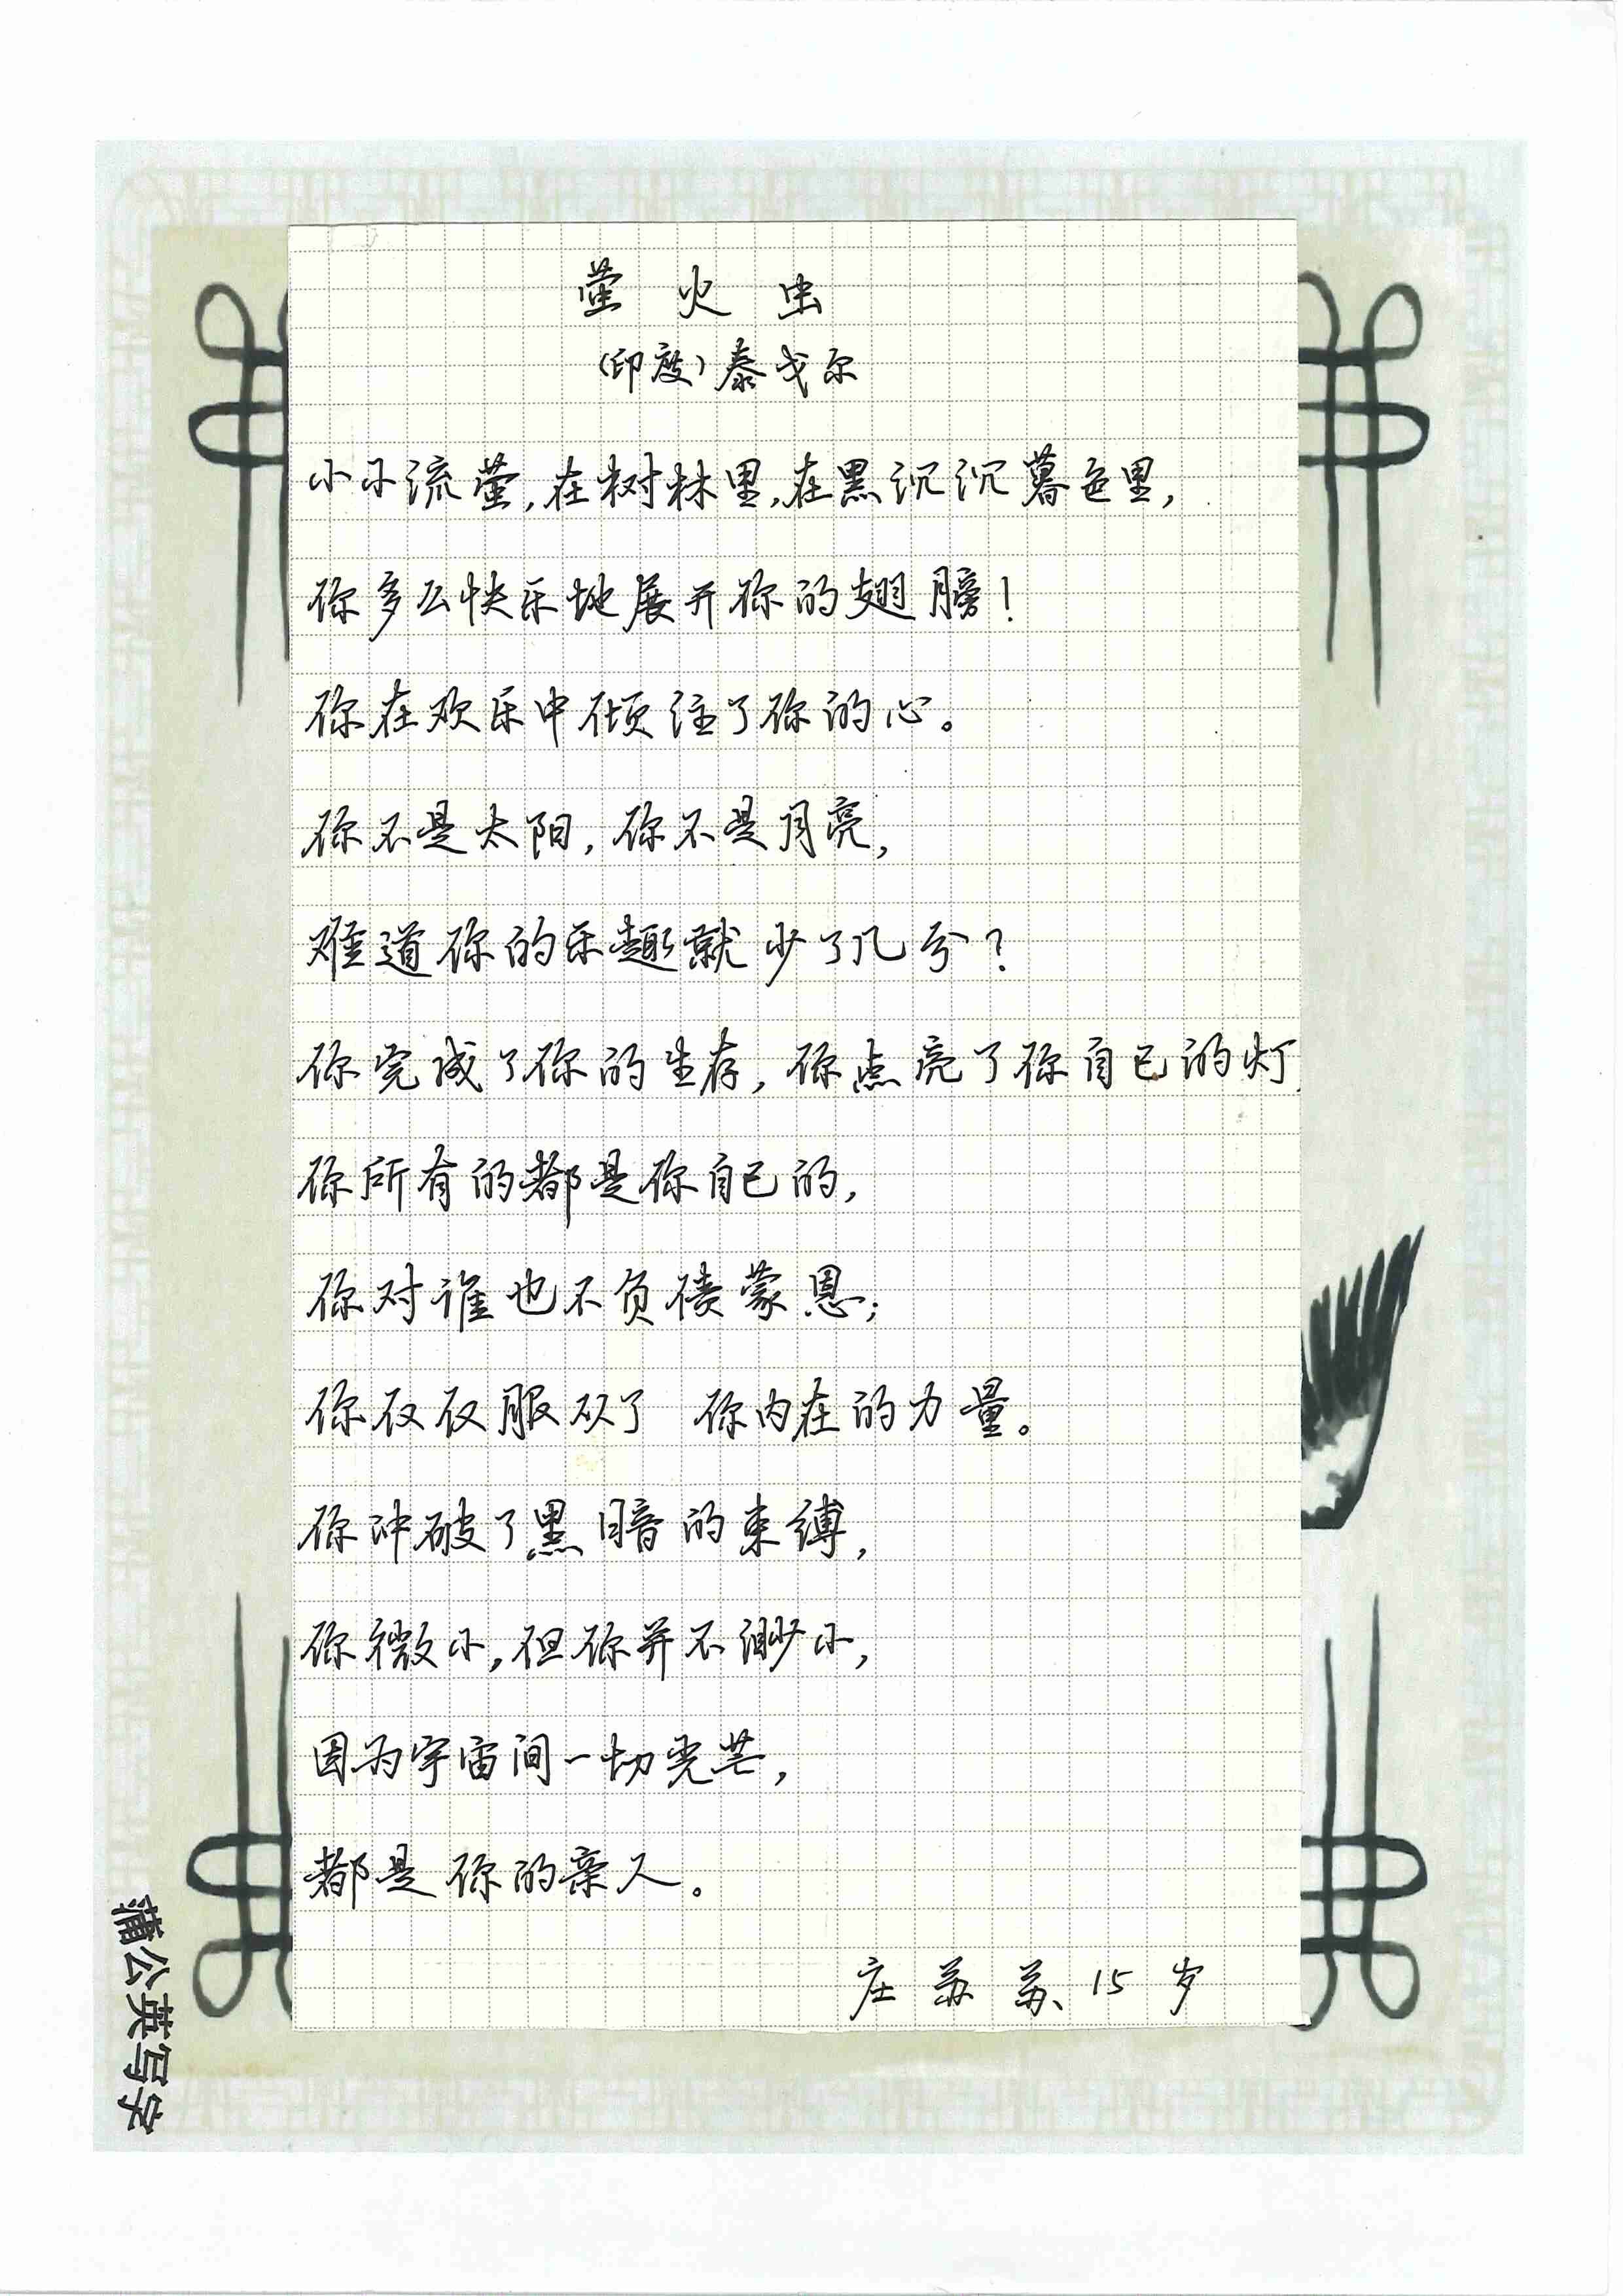 萤火虫
(印度)泰戈尔
小小流萤,在树林里,在黑沉沉暮色里,
你多么快乐地展开你的翅膀!
你在欢乐中倾注了你的心。
你不是太阳,你不是月亮,
难道你的乐趣就少了几分?
你完成了你的生存,你点亮了你自己的灯,
你所有的都是你自己的,
你对谁也不负债蒙恩;
你仅仅服从了 你内在的力量。
你冲破了黑暗的束缚,
你微小,但你并不渺小,
因为宇宙间一切光芒,
都是你的亲人。
庄苏苏、15岁
蒲公英写字